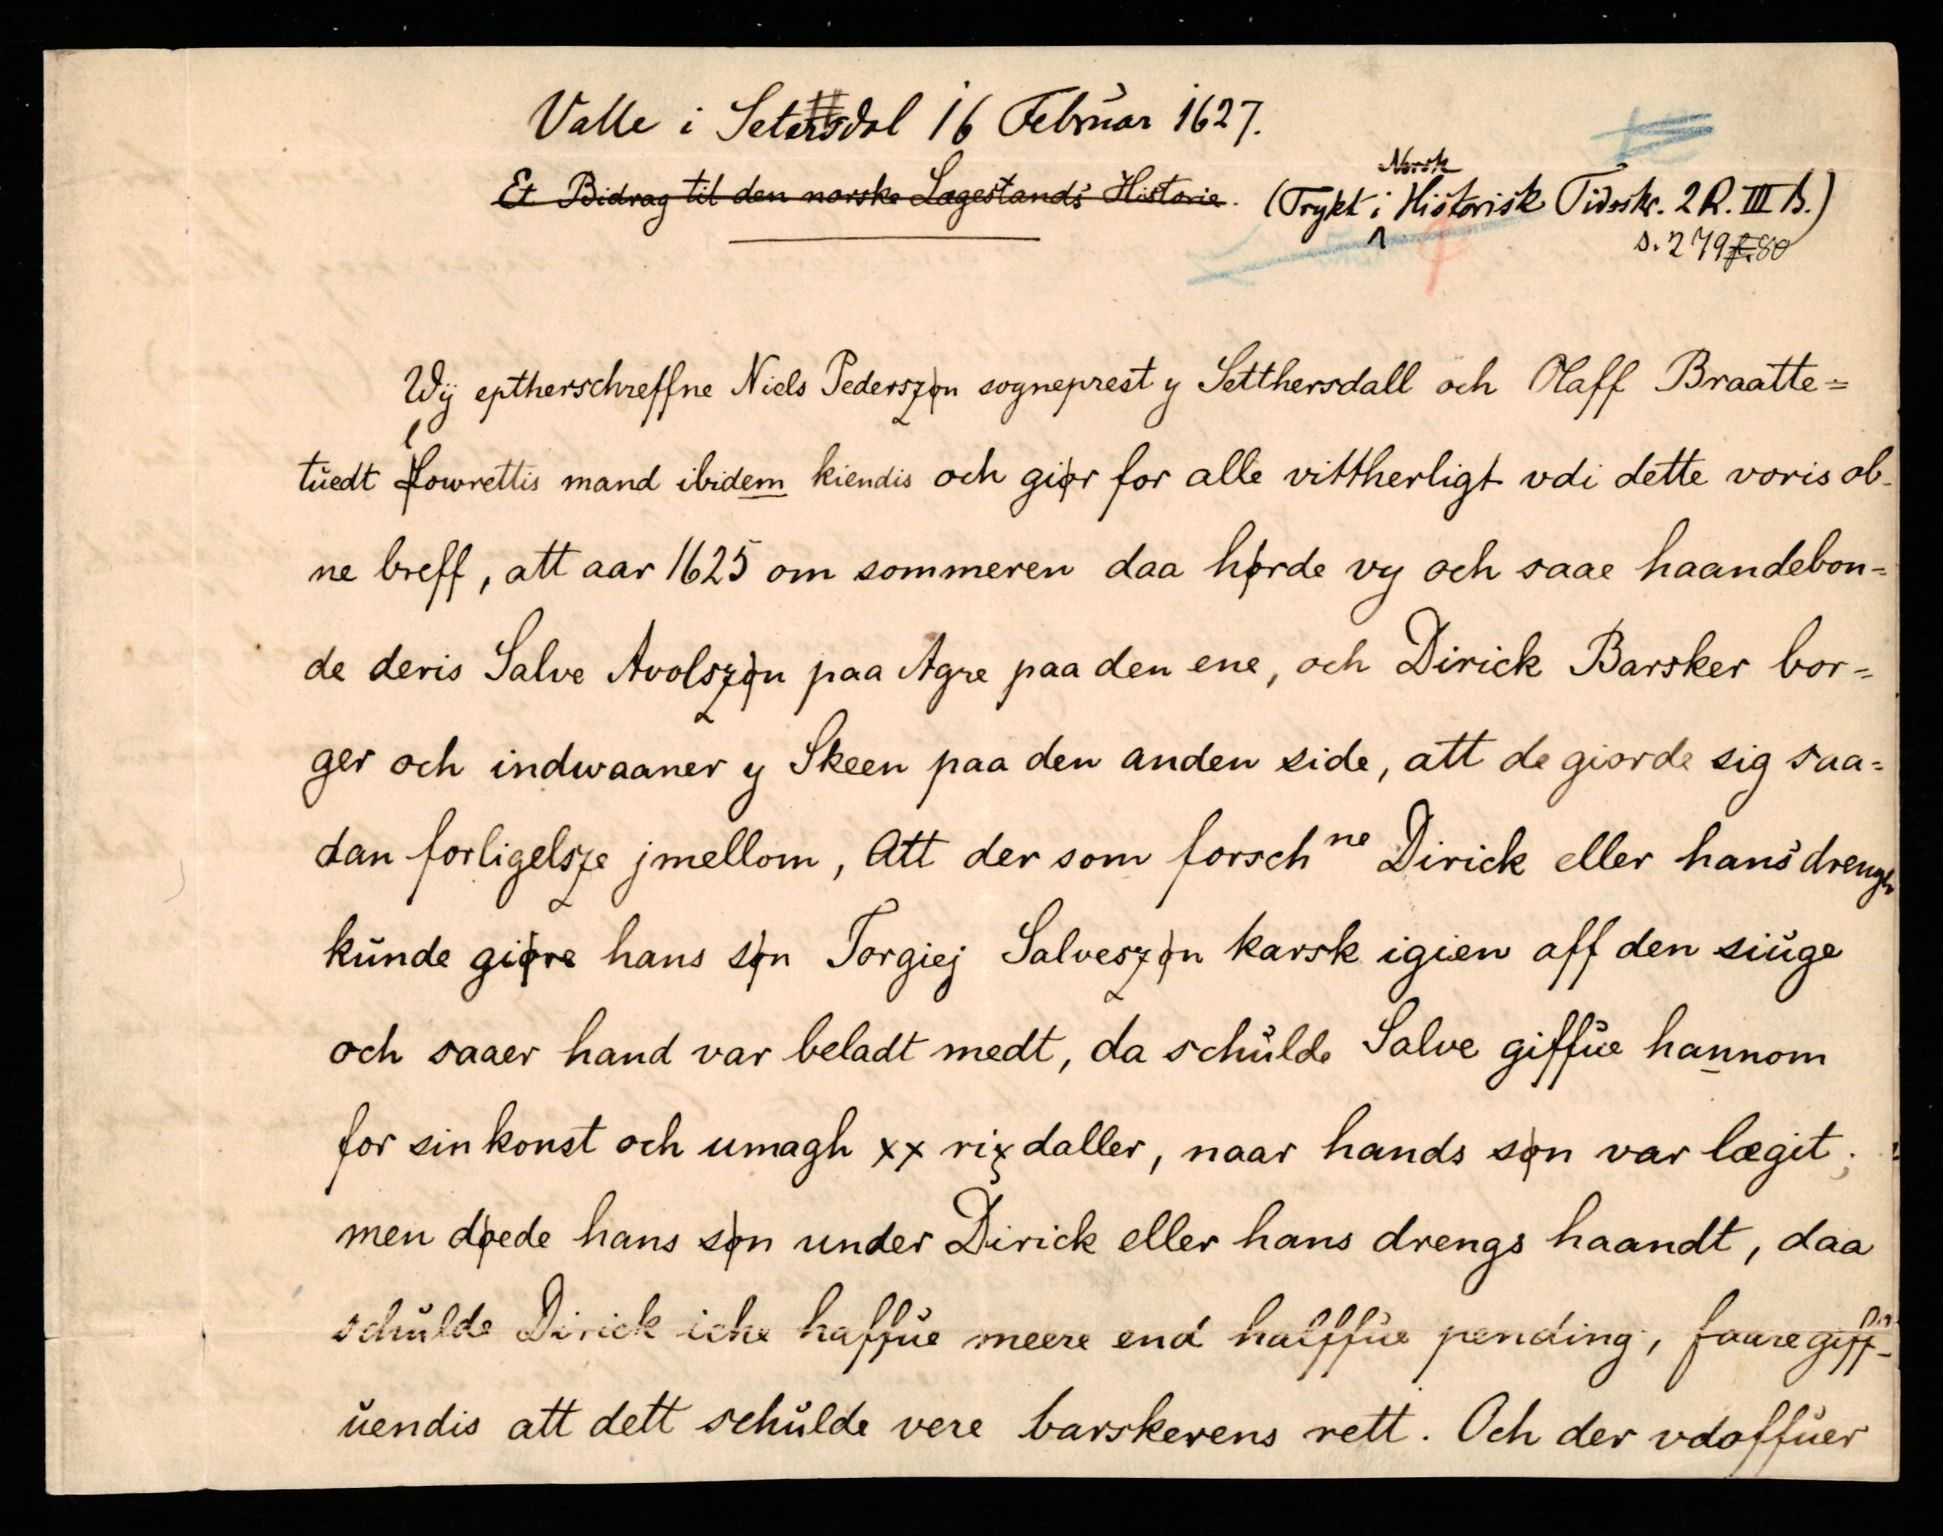 Valle i Setersdal 16 Februar 1627.
Et Bidrag til den norske Lægestands Historie. (Trykt i Norsk Historisk Tidsskr. 2 R. III B.)
s. 279 f. 80
Wij eptherschreffne Niels Pederszøn sogneprest y Setthersdall och Olaff Braatte=
tuedt lowrettis mand ibidem kiendis och giør for alle vittherligt vdi dette voris ob-
ne breff, att aar 1625 om sommeren daa hørde vy och saae haandebon=
de deris Salve Avolszøn paa Agre paa den ene, och Dirick Barsker bor=
ger och indwaaner y Skeen paa den anden side, att de giorde sig saa=
dan forligelsze jmellom, Att der som forsch ne Dirick eller hans drengh
kunde giøre hans søn Torgiej Salveszøn karsk igien aff den siuge
och saaer hand var beladt medt, da schulde Salve giffue hannom
for sin konst och umagh xx rix daller, naar hands søn var lægit;
men døede hans søn under Dirick eller hans drengs haandt, daa
schulde Dirick iche haffue meere end halffue pending, faare giff-
uendis att dett schulde vere barskerens rett. Och der vdoffuer